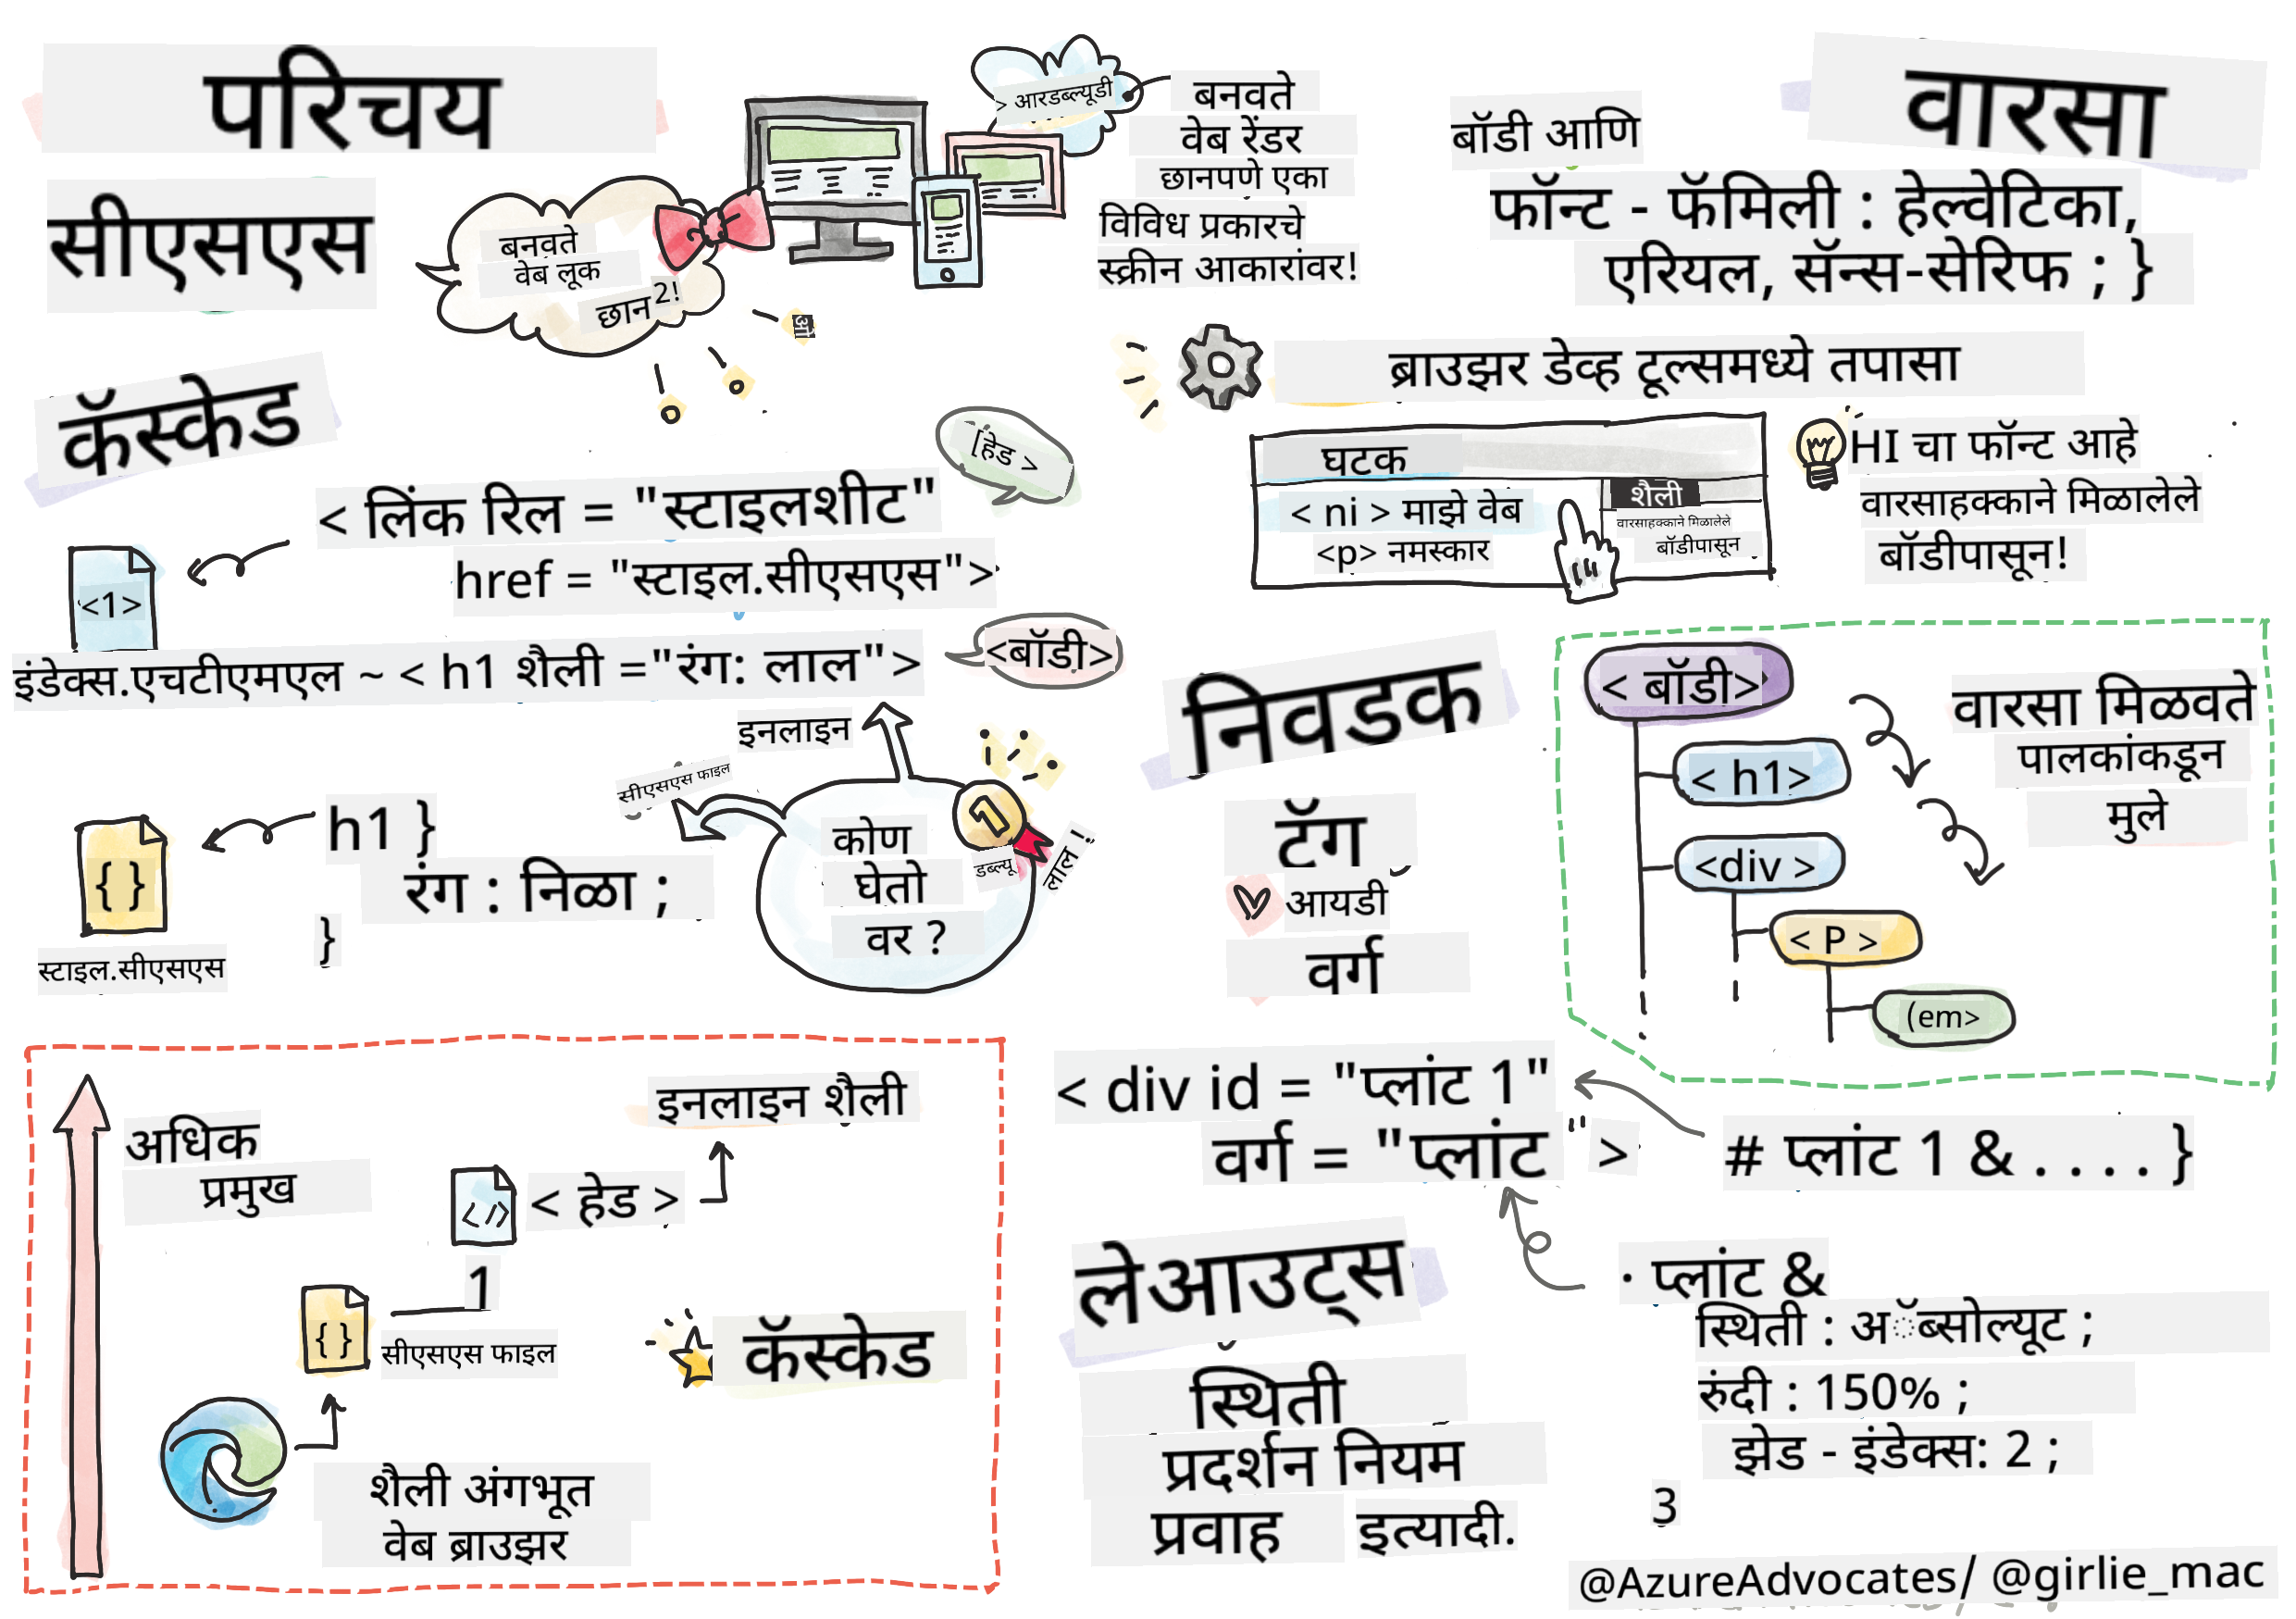 परिचय
सीएसएस
बनवते
वेब लूक
छान 2!
> आरडब्ल्यूडी
बनवते
वेब रेंडर
छानपणे एका
विविध प्रकारचे
स्क्रीन आकारांवर!
ओ
वारसा
बॉडी आणि
फॉन्ट - फॅमिली : हेल्वेटिका,
एरियल, सॅन्स-सेरिफ ; }
ब्राउझर डेव्ह टूल्समध्ये तपासा
घटक
< ni > माझे वेब
<p> नमस्कार
शैली
वारसाहक्काने मिळालेले
बॉडीपासून
HI चा फॉन्ट आहे
वारसाहक्काने मिळालेले
बॉडीपासून!
कॅस्केड
[हेड >
< लिंक रिल = "स्टाइलशीट"
href = "स्टाइल.सीएसएस">
<1>
इंडेक्स.एचटीएमएल ~ < h1 शैली ="रंग: लाल">
<बॉडी>
इनलाइन
सीएसएस फाइल
h1 }
रंग : निळा ;
}
{ }
स्टाइल.सीएसएस
कोण
घेतो
वर ?
1
डब्ल्यू
लाल !
निवडक
टॅग
आयडी
वर्ग
< बॉडी>
< h1>
<div >
< P >
(em>
वारसा मिळवते
पालकांकडून
मुले
< div id = "प्लांट 1"
वर्ग = "प्लांट " >
# प्लांट 1 & . . . . }
· प्लांट &
स्थिती : अॅब्सोल्यूट ;
रुंदी : 150% ;
झेड - इंडेक्स: 2 ;
3
लेआउट्स
स्थिती
प्रदर्शन नियम
प्रवाह इत्यादी.
अधिक
प्रमुख
इनलाइन शैली
</>
< हेड >
1
{ }
सीएसएस फाइल
कॅस्केड
शैली अंगभूत
वेब ब्राउझर
@AzureAdvocates/ @girlie_mac